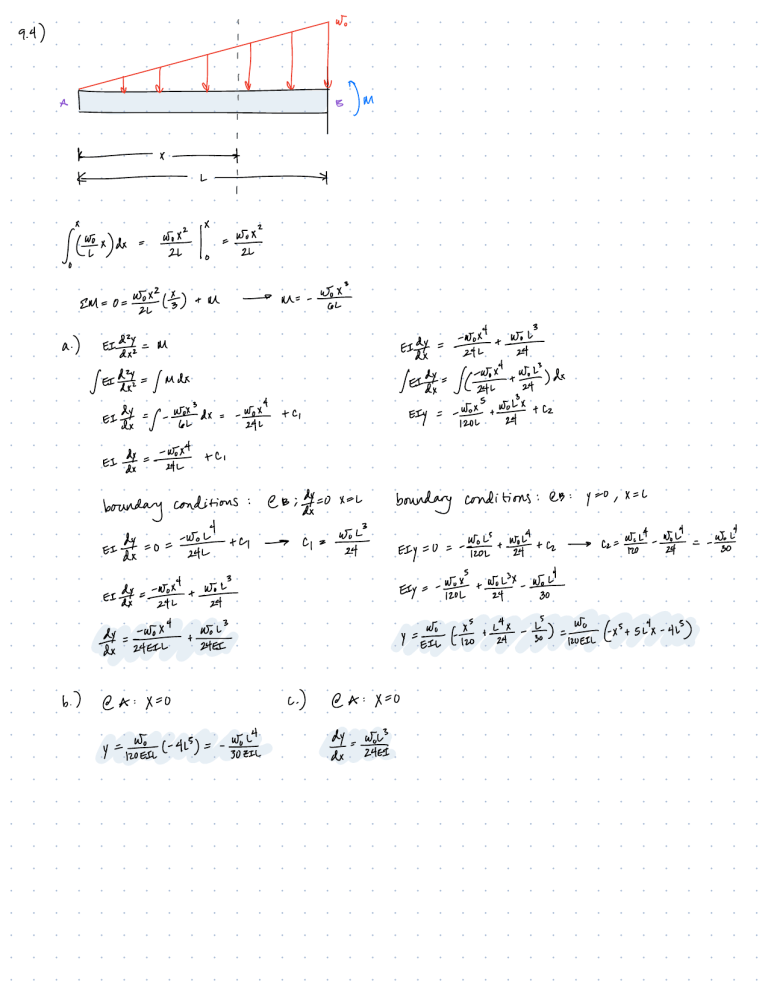 9.4)
w₀
A
B
M
x
L
∫₀ˣ (w₀/L x) dx = w₀x²/2L |₀ˣ = w₀x²/2L
ΣM = 0 = w₀x²/2L (x/3) + M → M = - w₀x³/6L
a.) EI d²y/dx² = M
∫ EI d²y/dx² = ∫ M dx
EI dy/dx = ∫ - w₀x³/6L dx = -w₀x⁴/24L + C₁
EI dy/dx = -w₀x⁴/24L + C₁
boundary conditions: @ B; dy/dx = 0 x=L
EI dy/dx = 0 = -w₀L⁴/24L + C₁ → C₁ = w₀L³/24
EI dy/dx = -w₀x⁴/24L + w₀L³/24
dy/dx = -w₀x⁴/24EIL + w₀L³/24EI
EI dy/dx = -w₀x⁴/24L + w₀L³/24
∫ EI dy/dx = ∫ (-w₀x⁴/24L + w₀L³/24) dx
EIy = -w₀x⁵/120L + w₀L³x/24 + C₂
boundary conditions: @B: y=0, x=L
EIy = 0 = -w₀L⁵/120L + w₀L⁴/24 + C₂ → C₂ = w₀L⁴/120 - w₀L⁴/24 = - w₀L⁴/30
EIy = - w₀x⁵/120L + w₀L³x/24 - w₀L⁴/30
y = w₀/EIL (- x⁵/120 + L⁴x/24 - L⁵/30) = w₀/120EIL (-x⁵ + 5L⁴x - 4L⁵)
b.) @ A: x=0
y = w₀/120EIL (-4L⁵) = - w₀L⁴/30EIL
c.) @ A: x=0
dy/dx = w₀L³/24EI